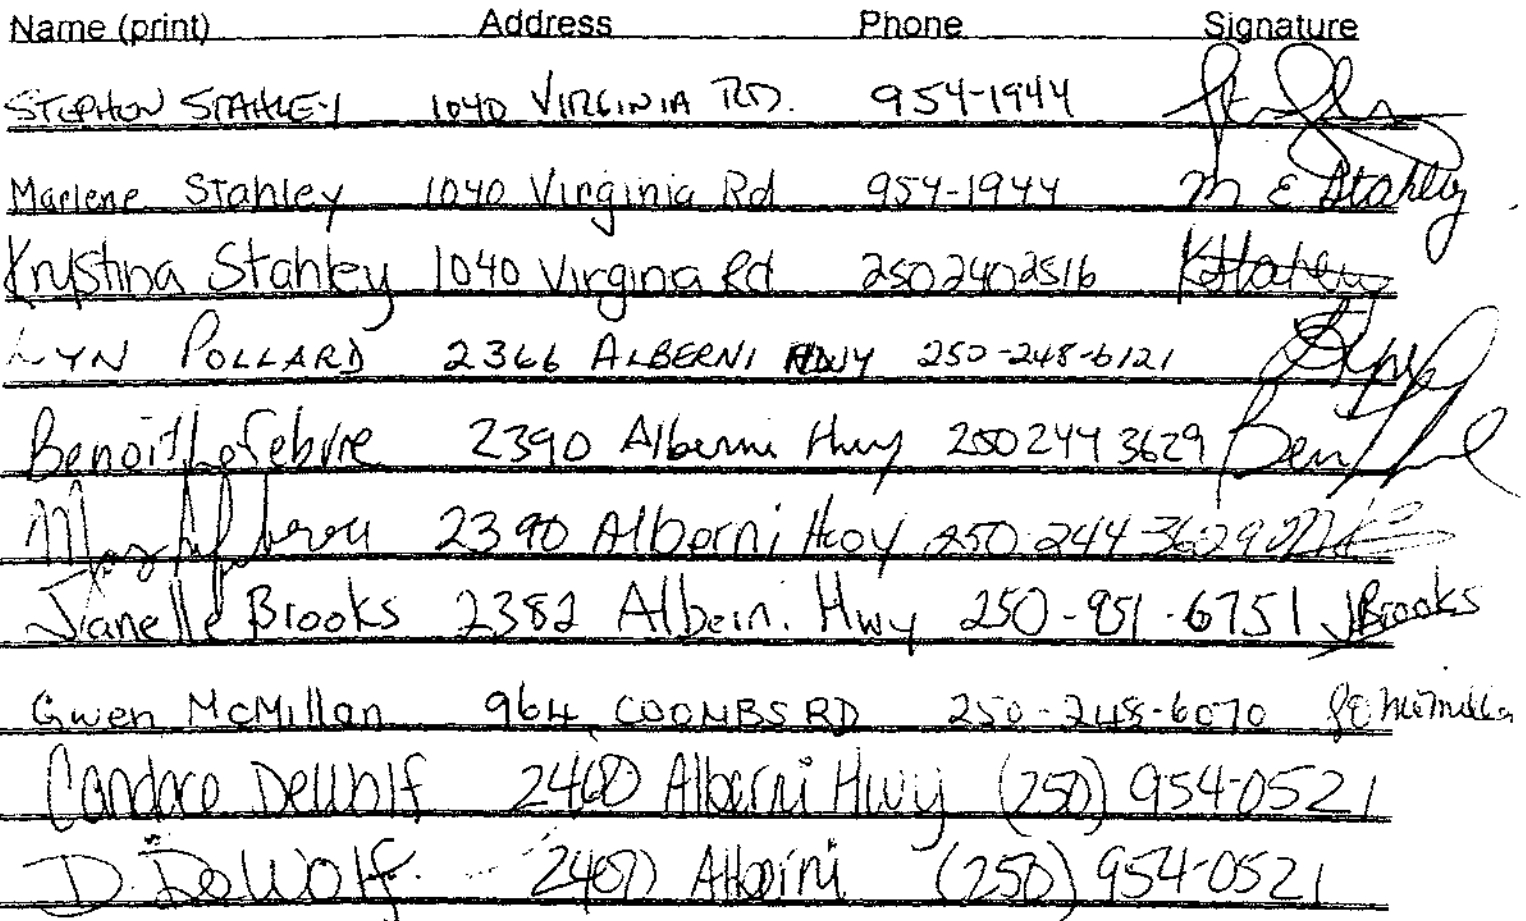 Name (print) Address Phone Signature
STEPHEN STAHLEY 1040 VIRGINIA RD. 954-1944
Marlene Stahley 1040 Virginia Rd 954-1944 M E Stahley
Krystina Stahley 1040 Virgina Rd 250 240 2516 KStahley
LYN POLLARD 2366 ALBERNI HWY 250-248-6121
Benoit Lefebvre 2390 Alberni Hwy 250 244 3629 Ben
2390 Alberni Hwy 250-244-3629
Janelle Brooks 2382 Alberni Hwy 250-951-6751 JBrooks
Gwen McMillan 964 COOMBS RD 250-248-6070 McMillan
Candace DeWolf 2460 Alberni Hwy (250) 954-0521
D. DeWolf 2460 Alberni (250) 954-0521